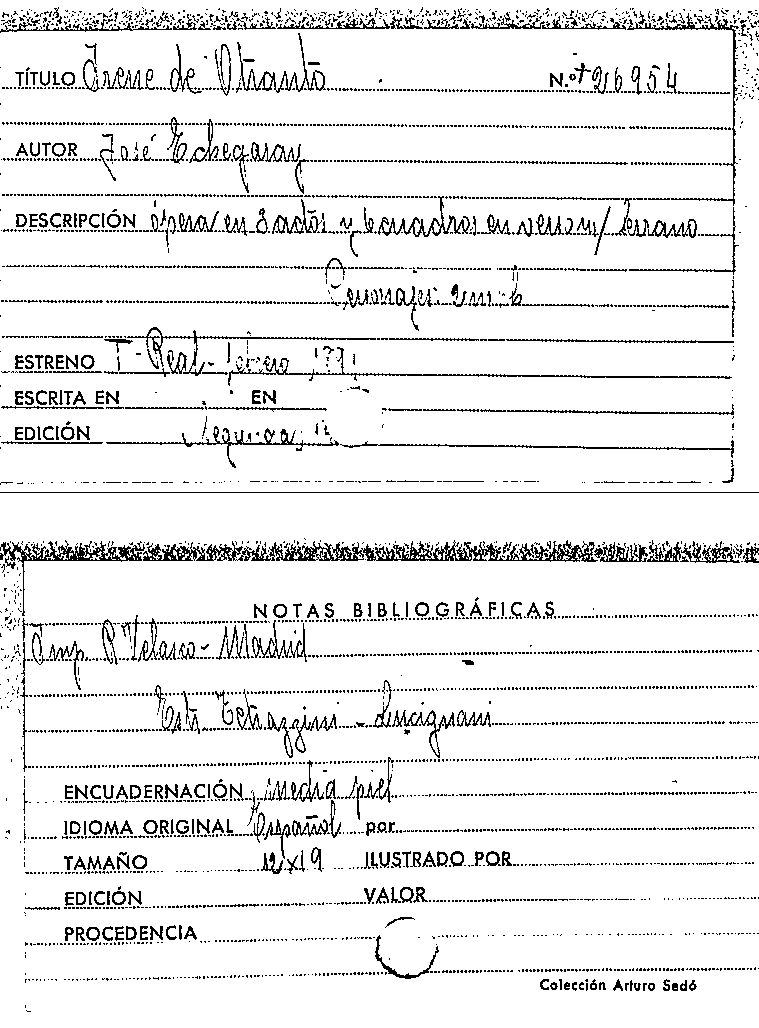 TÍTULO Irene de Otranto N.º +26954
AUTOR José Echegaray
DESCRIPCIÓN ópera en 3 actos y 6 cuadros en verso m/ Serrano
Personajes: 2 m - 6
ESTRENO T- Real - febrero
ESCRITA EN EN
EDICIÓN Segunda
NOTAS BIBLIOGRÁFICAS
Imp R Velasco - Madrid
Estr. Tetrazzini - Lucignani
ENCUADERNACIÓN media piel
IDIOMA ORIGINAL Español por
TAMAÑO 12x19 ILUSTRADO POR
EDICIÓN VALOR
PROCEDENCIA
Colección Arturo Sedó